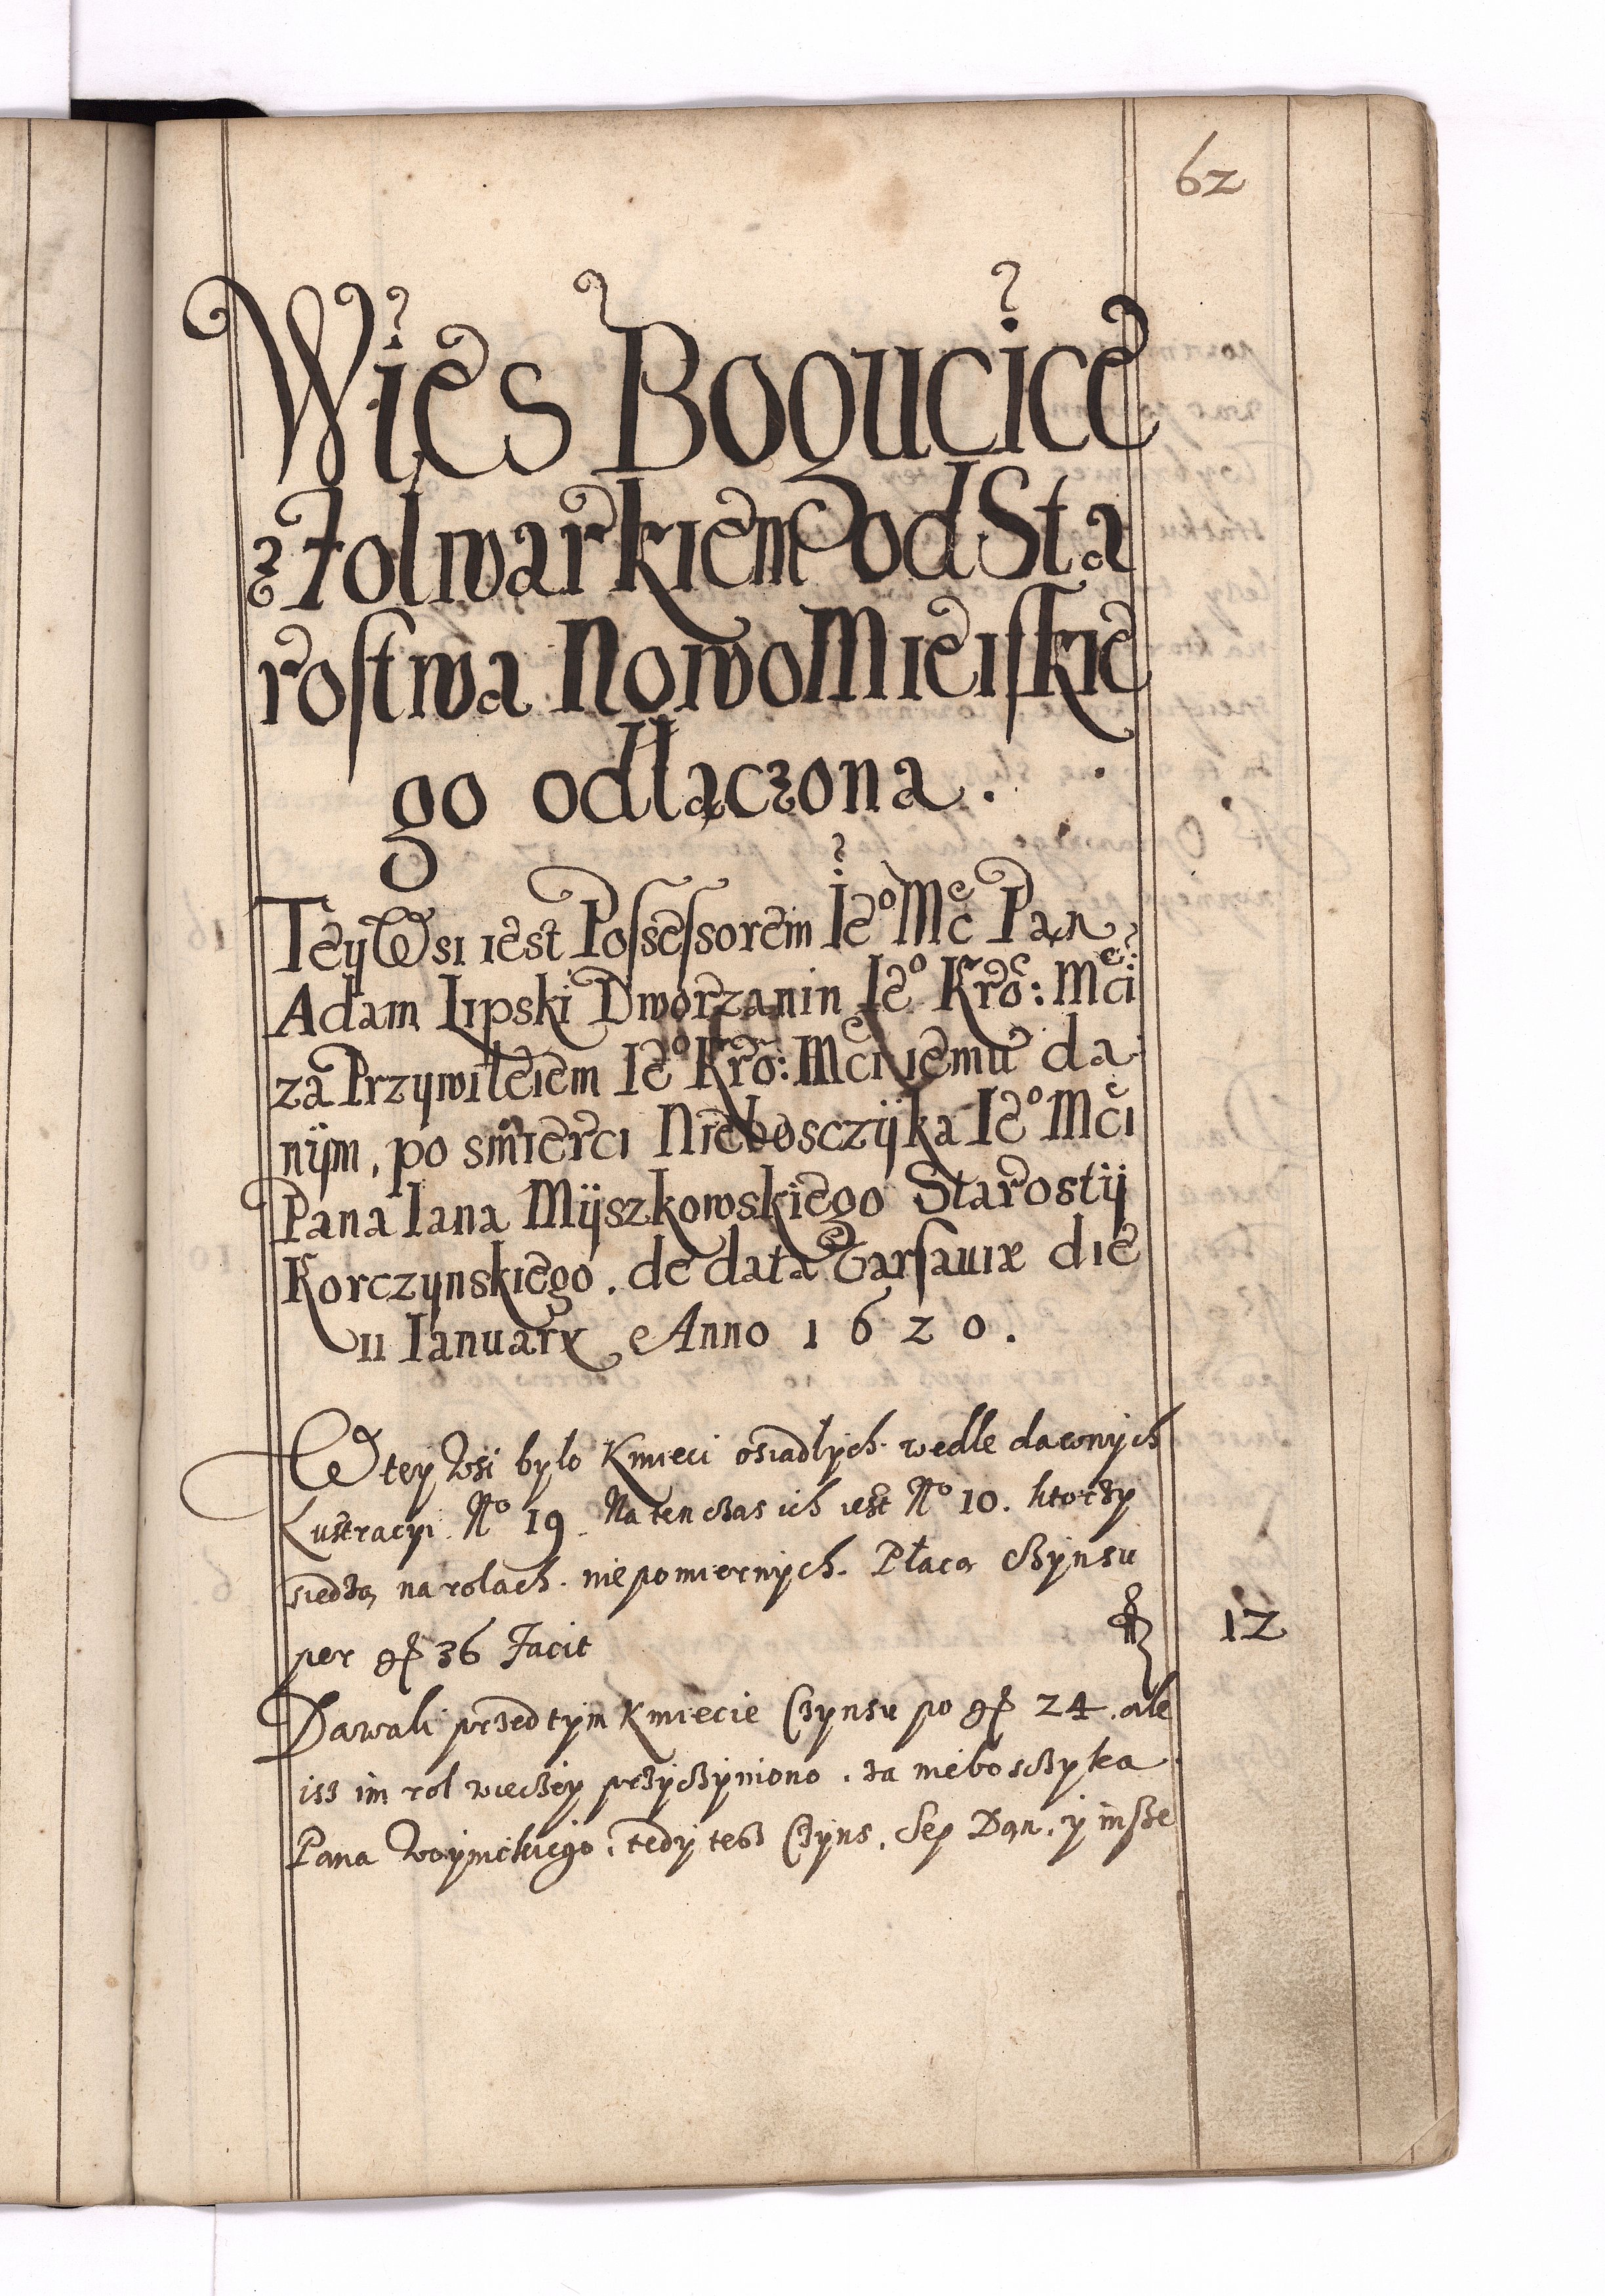 62
Wies Bogucice
z folwarkiem Od Sta
rostwa NowoMieiskie
go odłączona.
Tey Wsi iest Possessorem Ieº Mć Pan
Adam Lipski Dworzanin Ieº Kró: Mći
za Przywileiem Ieº Kró: Mći iemu da
nÿm, po smierci Nieboszczÿka Ieº Mći
Pana Iana Mÿszkowskiego Starostÿ
Korczynskiego. de data Varsauiæ die
11 Ianuarÿ Anno 1620.
W tey Wsi bylo Kmieci osiadłych wedle dawnych
Lustracyi Nº 19. Na ten czas ich iest Nº 10. ktorzy
siedzą na rolach niepomiernych. Płacą czynsu
per gr 36 Facit fl 12
Dawali przedtym Kmiecie Czynsu po gr 24. ale
isz im rol wieczey przyczyniono, za nieboszczyka
Pana tedy tesz Czyns, Sep Dan, y insze